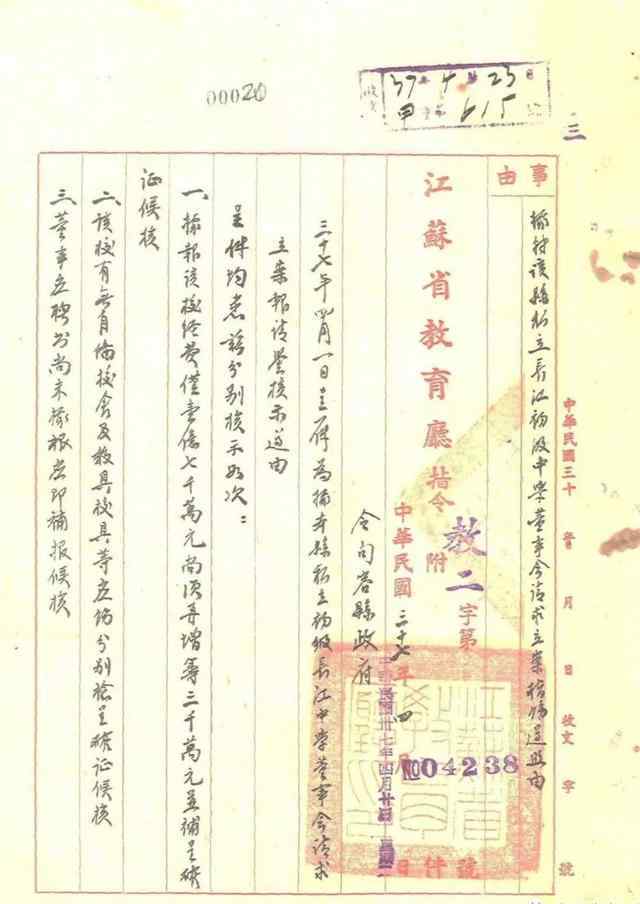 00020
37 4 23
甲 615
三
中華民國三十 年 月 日 收文 字 號
事由
據轉該縣私立長江初級中學董事會請求立案指飭遵照由
江蘇省教育廳指令
附
教二字第
№04238
號
件
中華民國三十七年四
日
中華民國卅七年四月廿
令句容縣政府
三十七年四月一日呈一件為據本縣私立初級長江中學董事會請求
立案報請鑒核示遵由
呈件均悉茲分別核示如次：
一、據報該校經費僅壹億七千萬元尚須再增籌二千萬元並補呈確
証候核
二、該校有無自備校舍及教具校具等應飭分別檢呈確証候核
三、董事應聘書尚未據報應即補报候核